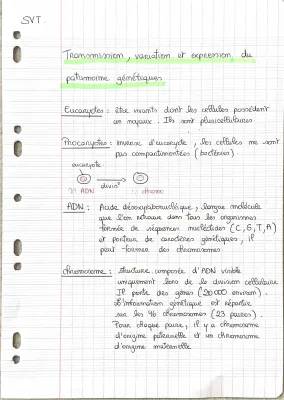 SVT
Transmission, variation et expression du
patrimoine génétiques
Eucaryotes : être vivants dont les cellules possèdent
un noyaux. Ils sont pluricellulaires
Procaryotes : inverse d'eucaryote, les cellules ne sont
pas compartimentées (bactéries)
eucaryote
divis°
ADN
chromo
ADN : Acide désoxyribonucléique, longue molécule
que l'on retrouve dans tous les organismes
formée de séquences nucléotides (C, G, T, A)
et porteur de caractères génétiques, il
peut former des chromosomes
Chromosome : structure composée d'ADN visible
uniquement lors de la division cellulaire
Il porte des gènes (20 000 environ).
L'information génétique est répartie
sur les 46 chromosomes (23 paires).
Pour chaque paire, il y a chromosome
d'origine paternelle et un chromosome
d'origine maternelle